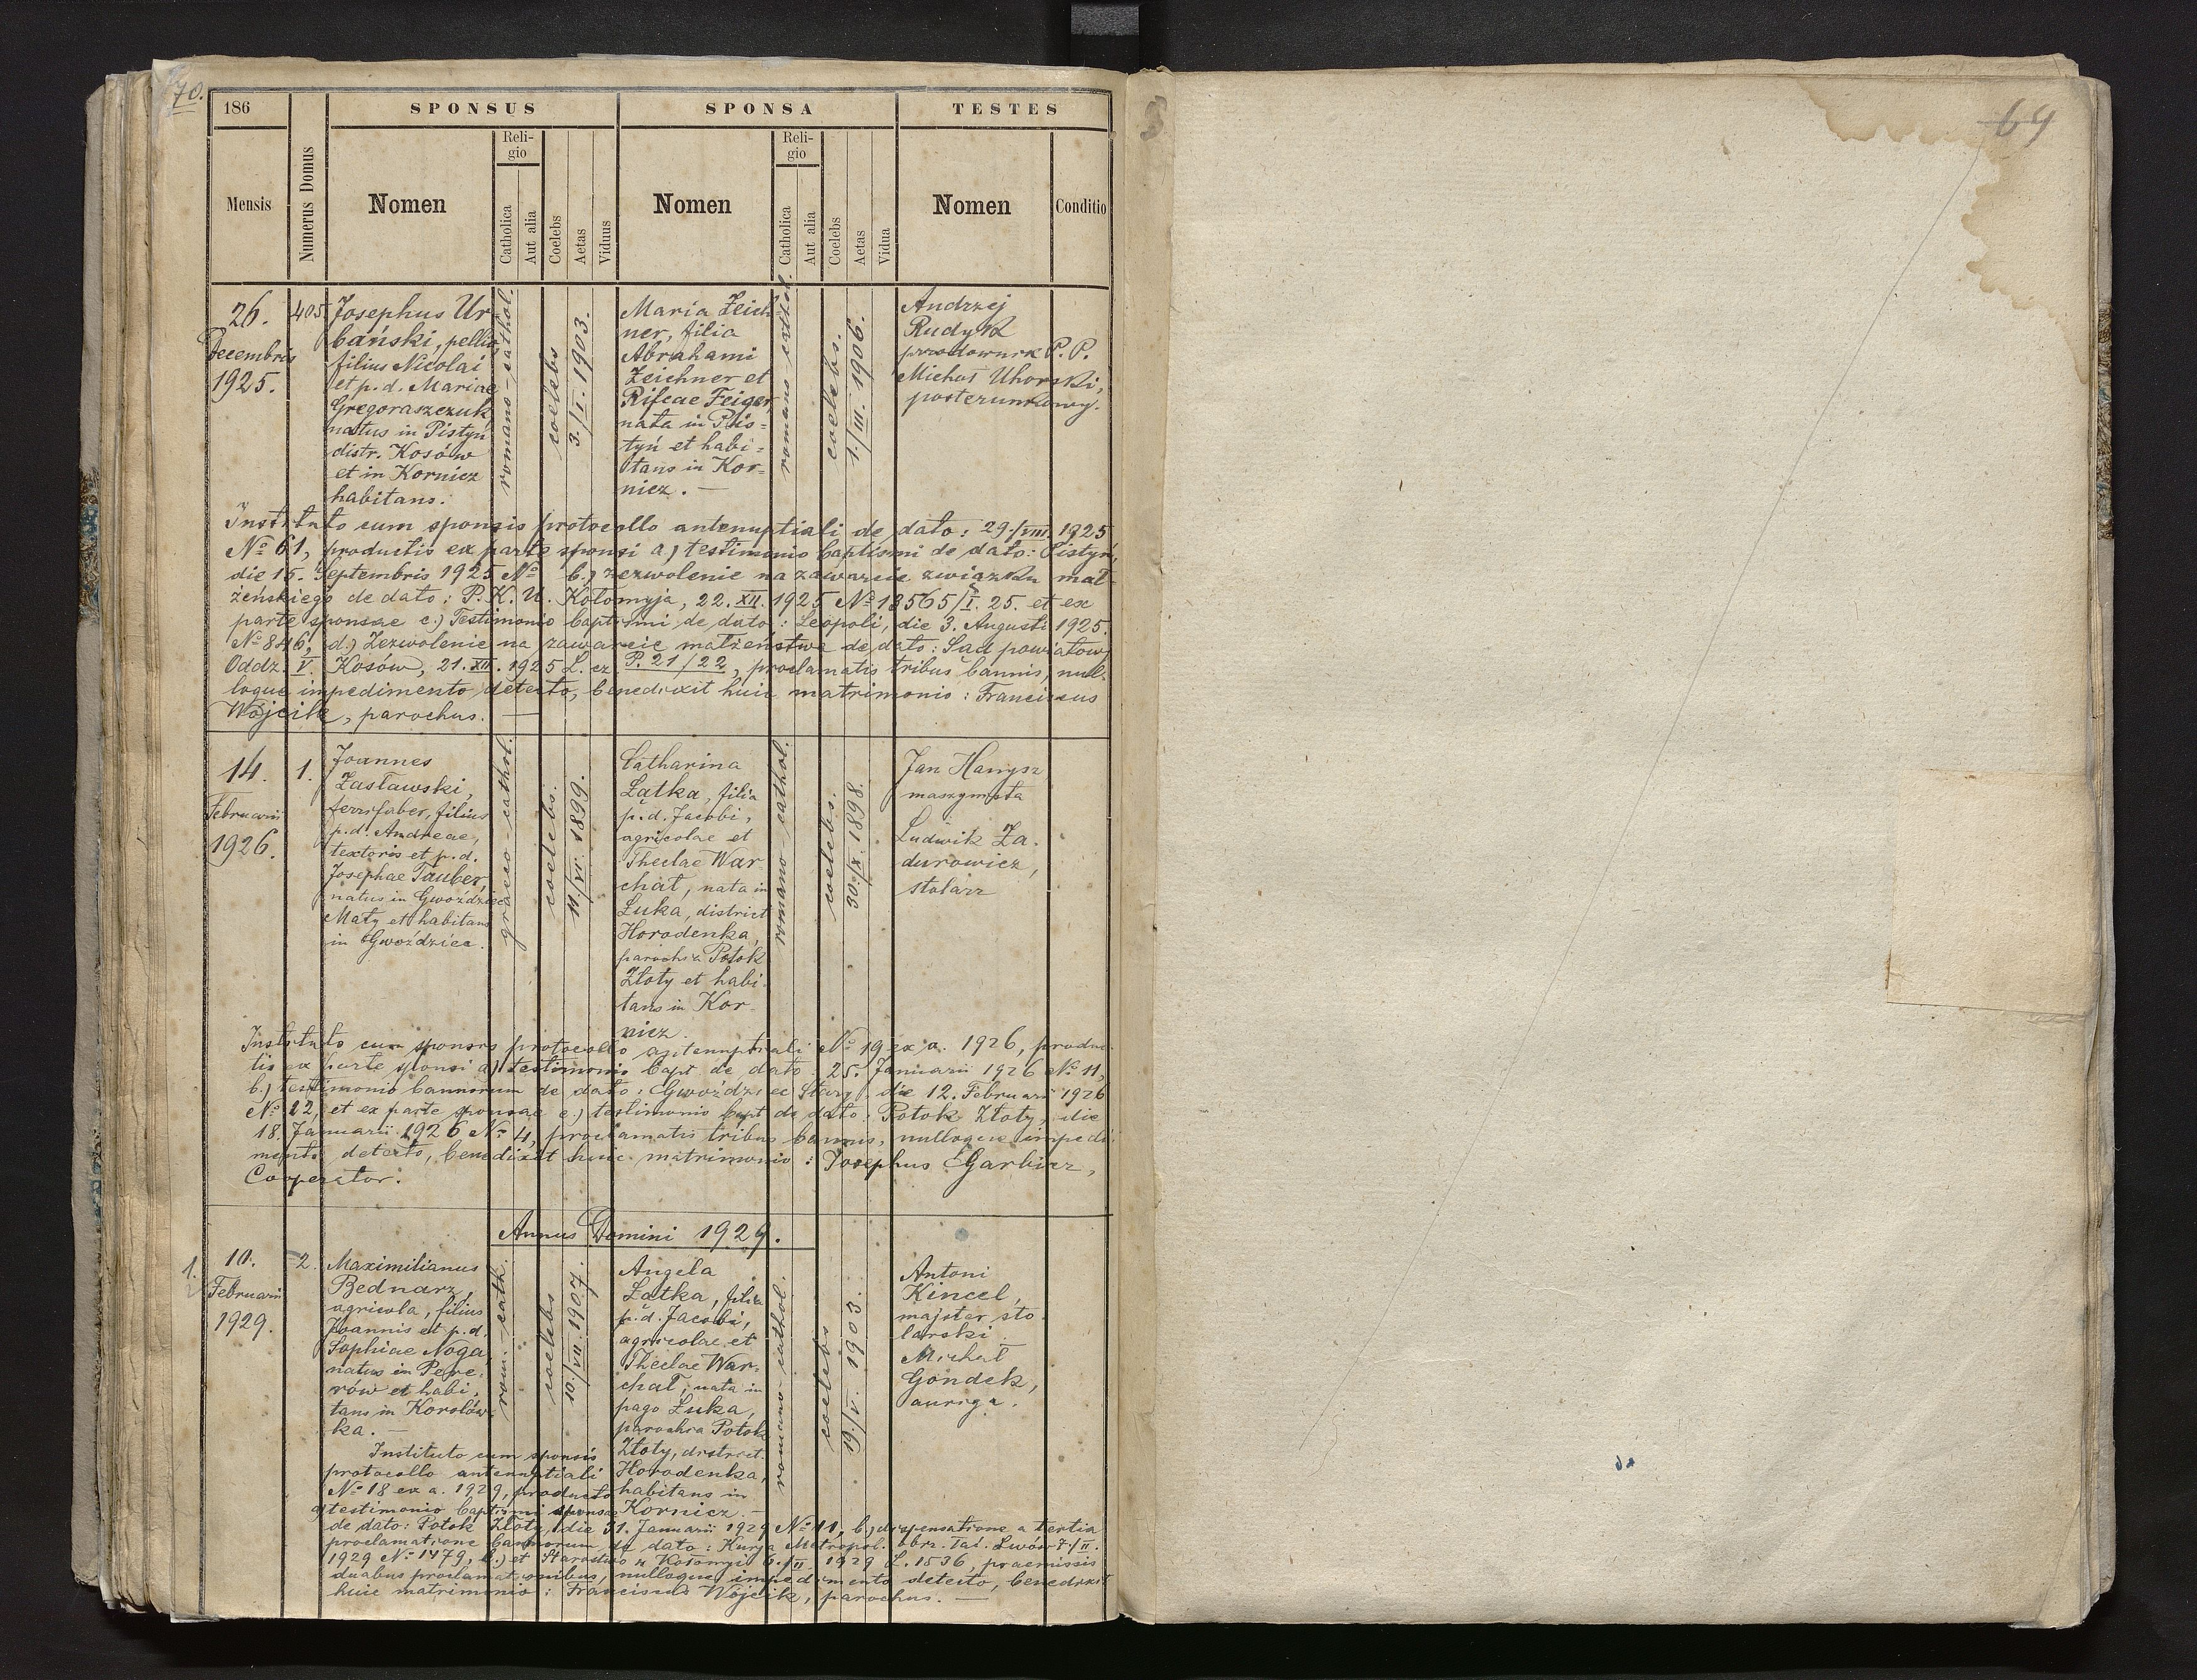 70.
186
SPONSUS
SPONSA
TESTES
Mensis
Numerus Domus
Nomen
Religio
Catholica
Aut alia
Coelebs
Aetas
Viduus
Nomen
Religio
Catholica
Aut alia
Coelebs
Aetas
Vidua
Nomen
Conditio
26.
Decembris
1925.
405
Josephus Ur
bański, pellio,
filius Nicolai
et p. d. Mariae
Gregoraszczuk
natus in Pistyń
distr. Kosów
et in Kornicz
habitans.
romano-cathol.
coelebs
3./I. 1903.
Maria Zeich
ner, filia
Abrahami
Zeichner et
Rifcae Feiger,
nata in Pis=
tyń et habi=
tans in Kor=
nicz. —
romano-cathol.
coelebs.
1./III. 1906.
Andrzej
Rudyk
przodownik P. P.
Michał Uhorski,
posterunkowy.
Instituto cum sponsis protocollo antenuptiali de dato: 29./VIII. 1925
№ 61, productis ex parte sponsi a) testimonio baptismi de dato: Pistyń,
die 15. Septembris 1925 № b.) zezwolenie na zawarcie związku mał-
żeńskiego de dato: P. K. U. Kołomyja, 22. XII. 1925 № 18565/I. 25. et ex
parte sponsae c.) Testimonio baptismi de dato: Leopoli, die 3. Augusti 1925.
№ 846, d.) Zezwolenie na zawarcie małżeństwa de dato: Sąd powiatowy
Oddz. V. Kosów, 21. XII. 1925 L. cz. P. 21/22, proclamatis tribus bannis, nul-
loque impedimento detecto, benedixit huic matrimonio: Franciscus
Wójcik, parochus. —
14.
Februarii
1926.
1.
Joannes
Zasławski,
ferrifaber, filius
p. d. Andreae,
textoris et p. d.
Josephae Tauber,
natus in Gwoździec
Mały et habitans
in Gwoździec.
graeco-cathol.
coelebs.
14/VI. 1899.
Catharina
Łatka, filia
p. d. Jacobi,
agricolae et
Theclae War
chał, nata in
Łuka, district
Horodenka,
parochia Potok
Złoty et habi
tans in Kor-
nicz.
romano-cathol.
coelebs.
30./IX. 1898.
Jan Hanysz
maszynista
Ludwik Za-
durowicz,
stolarz
Instituto cum sponsis protocollo antenuptiali № 19 ex a. 1926, produc-
tis ex parte sponsi a) testimonio bapt. de dato: 25. Januarii 1926 № 11,
b.) testimonio bannorum de dato: Gwoździec Stary, die 12. Februarii 1926
№ 12, et ex parte sponsae c.) testimonio bapt. de dato: Potok Złoty, die
18. Januarii 1926 № 4, proclamatis tribus bannis, nulloque impedi-
mento detecto, benedixit huic matrimonio: Josephus Garbicz,
Cooperator.
Annus Domini 1929.
1.
10.
Februarii
1929.
2.
Maximilianus
Bednarz,
agricola, filius
Joannis et p. d.
Sophiae Noga
natus in Pere-
rów et habi-
tans in Korolów
ka. —
rom.-cath.
coelebs
10./VII. 1907.
Angela
Łatka, filia
p. d. Jacobi,
agricolae et
Theclae War-
chał, nata in
pago Łuka,
parochia Potok
Złoty, district.
Horodenka,
habitans in
Kornicz. —
romano-cathol.
coelebs
19./V. 1903.
Antoni
Kincel,
majster sto
larski
Michał
Gondek,
auriga.
Instituto cum sponsis
protocollo antenuptiali
№ 18 ex a. 1929, producto
a) testimonio baptismi sponsae
de dato: Potok Złoty, die 31. Januarii 1929 № 11, b.) dispensatione a tertia
proclamatione bannorum de dato: Kurja Metropol. obrz. łać. Lwów 7./II.
1929 № 1479, c.) et Starostwo w Kołomyi 6./II. 1929 L. 1536, praemissis
duabus proclamationibus, nulloque impedimento detecto, benedixit
huic matrimonio: Franciscus Wójcik, parochus. —
69